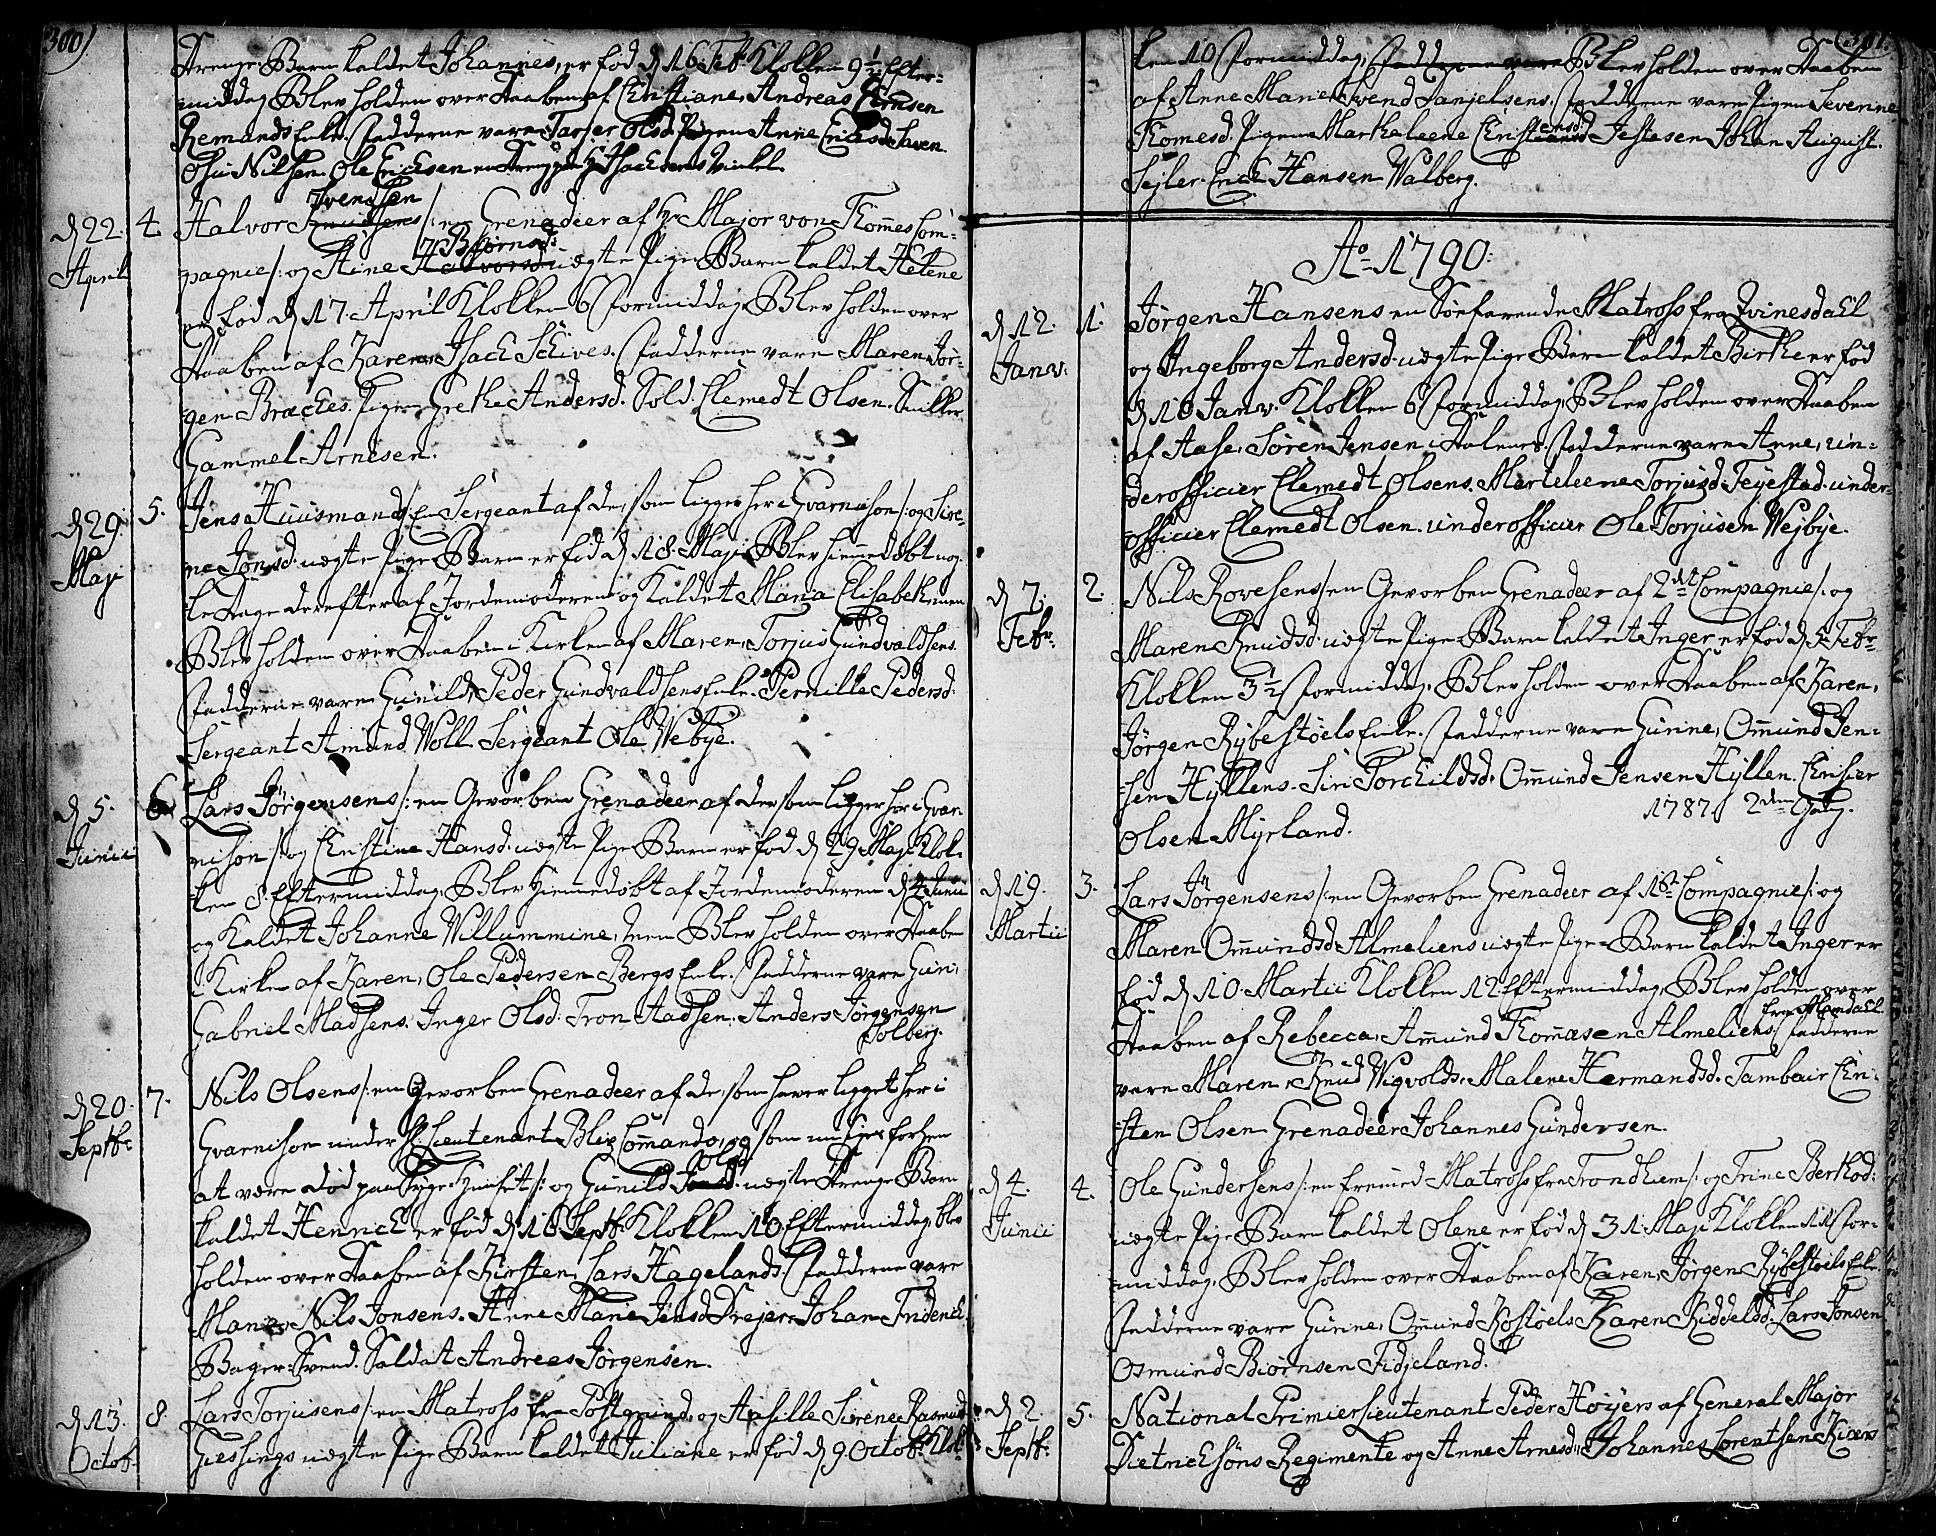 300)
Drenge-Barn kaldet Johannes, er fød d 16 Feb. Klokken 9½ Efter-
middag, Blev holden over Daaben af Christiane, Andreas
Remands Enke. Fadderne vare Pigen Anne
Nilsen. Ole Ericksen en Dreng
d 22. April 4. Halvor Svendsen /: en Grenadeer af Hr Major von Thomes Com-
pagnie :/ og Stine Biørnsd. uægte Pige-Barn kaldet Helene
er fød d 17. April Klokken 6 Formiddag, Blev holden over
Daaben af Karen, Isach Schives. Fadderne vare Maren, Jør-
gen Braches. Pigen Grethe Andersd. Sold. Clemedt Olsen. Snitker
Gammel Arnesen.
d 29. Maji 5. Jens Huusmands /: En Sergeant af de, som ligger her i Gvarnison :/ og Sire-
ne Jonsd. uægte Pige-Barn er fød d 18 Maji, Blev hiemmedøbt nog-
le Dage derefter af Jordemoderen og Kaldet Maria Elisabeth, men
Blev holden over Daaben i Kirken af Maren, Torjus Gundvaldsens.
Fadderne vare Gunild, Peder Gundvaldsens Enke. Pernille Pedersd.
Sergeant Amund Woll. Sergeant Ole Webye.
d 5. Junii 6. Lars Jörgensens /: en Gevorben Grenadeer af de, som ligger her i Gvar-
nison :/ og Christine Hansd. uægte Pige Barn er fød d 29 Maji Klok-
ken 8 Eftermiddag, Blev Hiemmedøbt af Jordemoderen d 4 Junii
og Kaldet Johanne Willummine, men Blev holden over Daaben
i Kirken af Karen, Ole Pedersen Bergs Enke. Fadderne vare Guri,
Gabriel Madsens. Inger Olsd. Tron Aadsen. Anders Jörgensen
Solberg.
d 20. Septbr 7. Nils Olsens /: en Gevorben Grenadeer af de, som haver ligget her i
Gvarnison under Hr Lieutenant Blix Commando, og som nu siges forhen
at være død paa Syge-Huuset :/ og Gunild Olsd. uægte Drenge Barn
kaldet Henrich er fød d 16 Septbr Klokken 10 Eftermiddag, blev
holden over Daaben af Kirsten, Lars Hagelands. Fadderne vare
Marie, Nils Jonsens. Anne Marie Jensd. Drejer, Johan Friderich
Bager-Svend. Soldat Andreas Jørgensen.
d 13. Octob. 8. Lars Torjusens /: en Matross fra Postgrund :/ og Apsille Sirene Rasmusd.
Giessings uægte Pige Barn kaldet Juliane er fød d 9 Octob. Klok-
301.
ken 10 Formiddag, Fadderne vare Blev holden over Daaben
af Anne Marie, Svend Danjelsens. Fadderne vare Pigen Severine
Thomesd. Pigen Marthe Leene Christensd. Jestesen Johan August.
Sejler. Erich Hansen Walberg.
Ao 1790:
d 12. Janv. 1. Jørgen Hansens en Søefarende Matross fra Qvinesdahl
og Ingeborg Andersd. uægte Pige Barn kaldet Birthe er fød
d 10 Janv. Klokken 6 Formiddag, Blev holden over Daaben
af Aase, Sören Jensen i Dalenes. Fadderne vare Anne, un-
derofficier Clemedt Olsens. Marteleene Torjusd. Feyestad. under-
officier Clemedt Olsen. underofficier Ole Torjusen Wejbye.
d 7. Febr. 2. Nils Rovesens /: en Gevorben Grenadeer af 2det Compagnie :/ og
Maren Knudsd. uægte Pige Barn kaldet Inger er fød d 5 Febr
Klokken 3½ Formiddag, Blev holden over Daaben af Karen,
Jørgen Rybestöels Enke. Fadderne vare Gurine, Omund Jen-
sen Hyllens. Siri Torchildsd. Omund Jensen Hyllen. Christer
Olsen Myrland.
1787. 2den Gang.
d 19. Martii 3. Lars Jörgensens /: en Gevorben Grenadeer af 1ste Compagnie :/ og
Maren Omundsd. Almeliens uægte Pige-Barn kaldet Inger er
fød d 10 Martii Klokken 12 Eftermiddag, Blev holden over
Daaben af Rebecca, Amund Thomasen Almeliens fra Mandahl. Fadderne
vare Maren, Knud Wigvolds. Malene Hermandsd. Tambair Chri-
sten Olsen Grenadeer Johannes Gundersen.
d 4. Junii 4. Ole Gundersens /: en fremed Matross fra Trondhiem :/ og Trine Berthod:
uægte Pige Barn kaldet Olene er fød d 31 Maji Klokken 11 For-
middag, Blev holden over Daaben af Karen, Jørgen Rybestöels Enke.
Fadderne vare Gurine, Omund Rostöels. Karen Kiddelsd. Lars Jonsen
Osmund Biørnsen Fidjeland.
d 2. Septbr. 5. National Primierlieutenant Peder Höyers af General Major
Dietrichsöns Regimente og Anne Arnesd., Johannes Lorentsen Kiærs